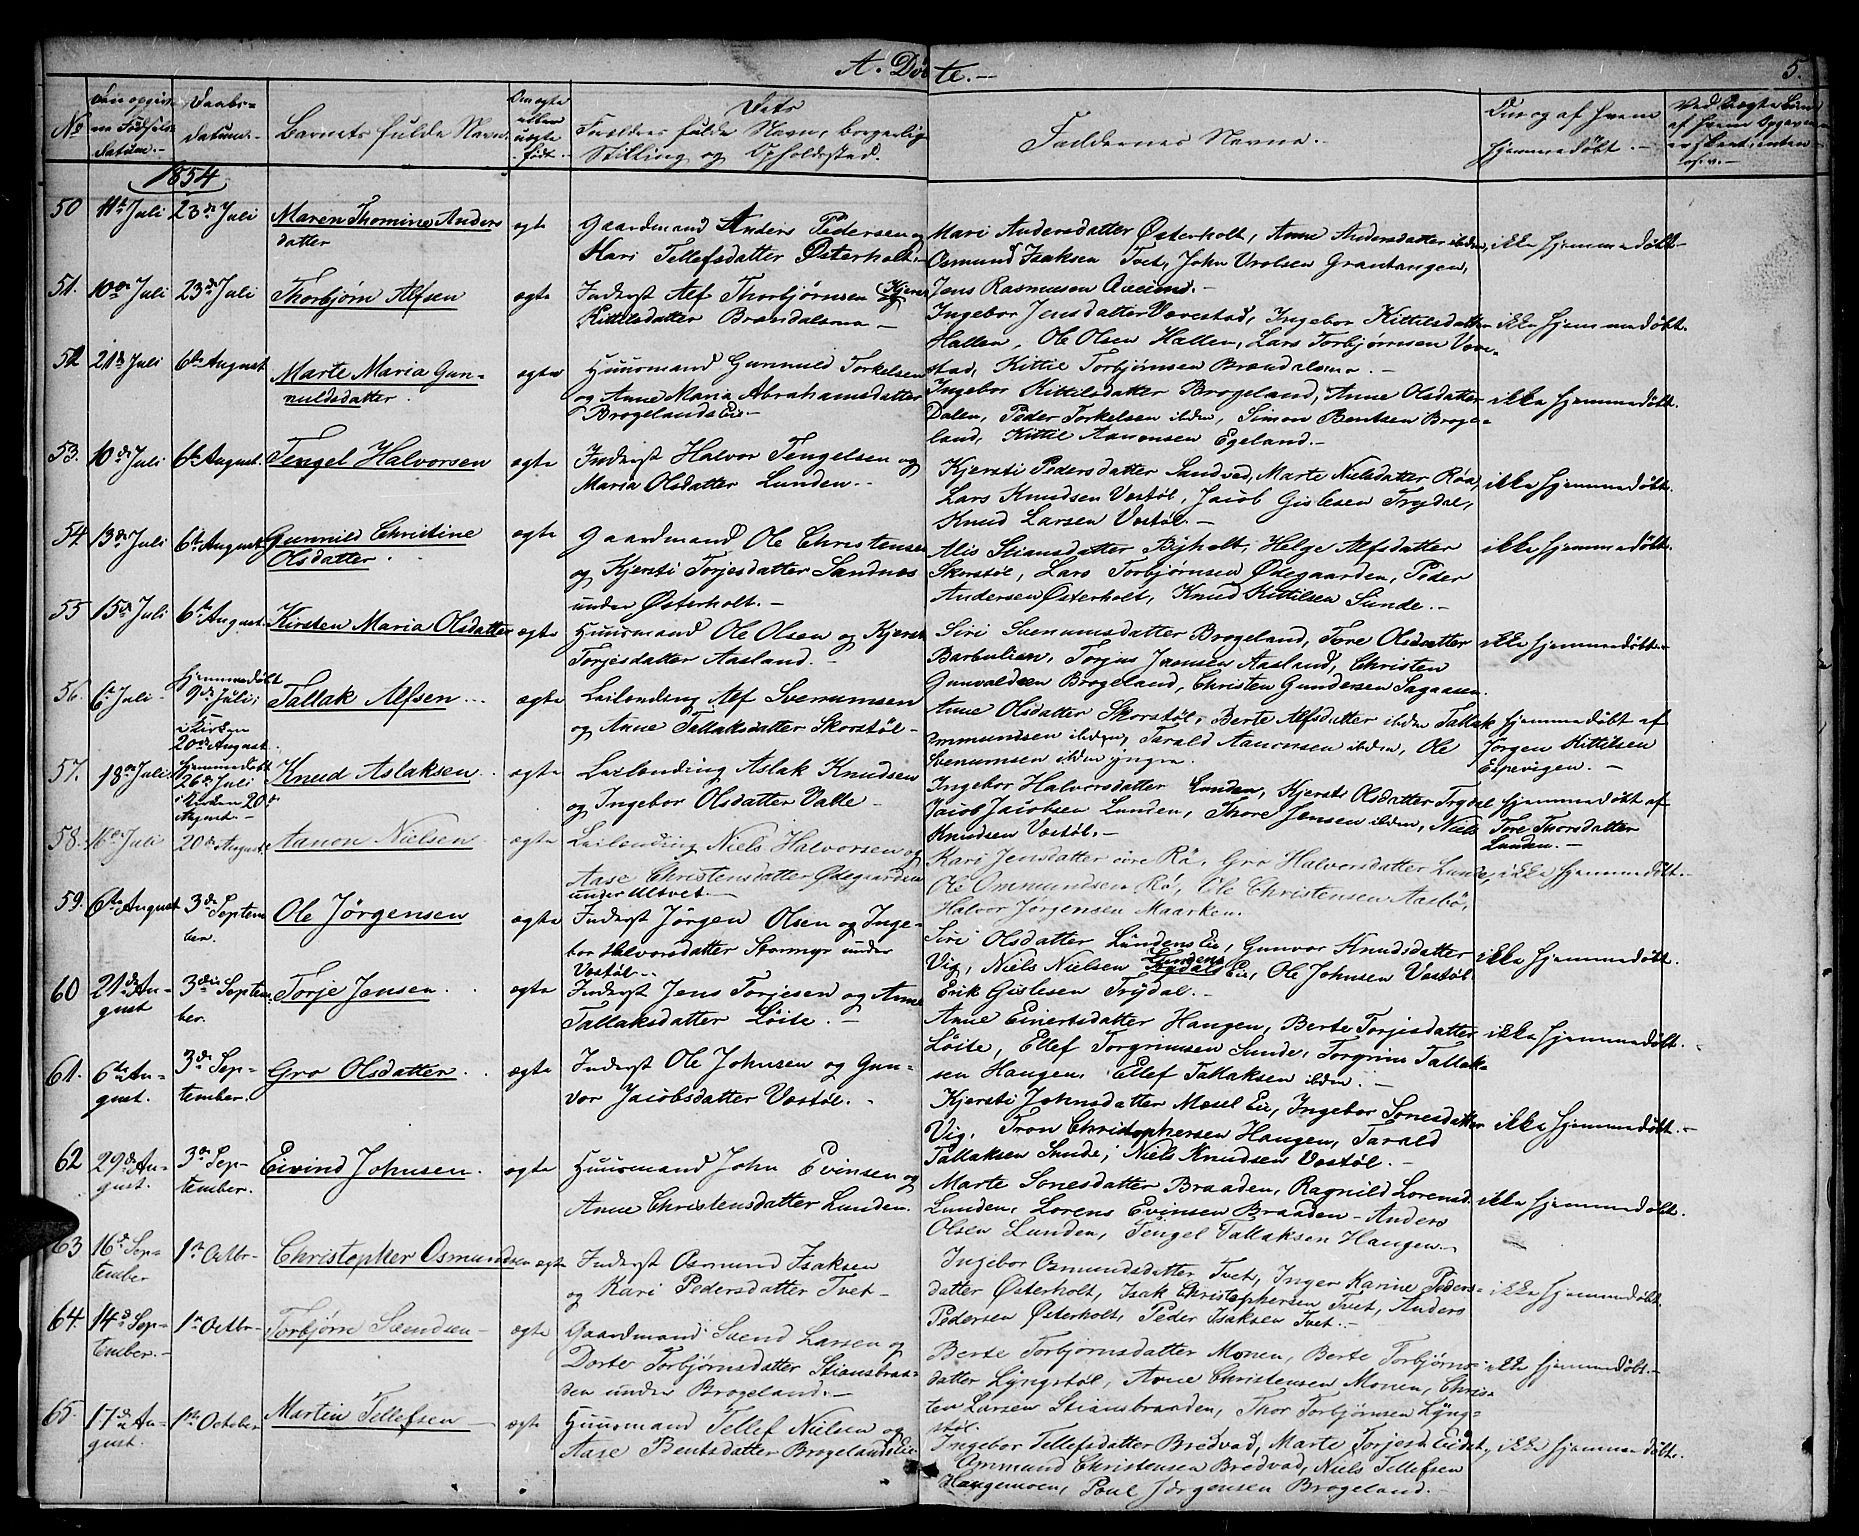 A. Døbte.-
5.
No
Daabs-
datum.-
Barnets fulde Navn.
Om ægte
eller
uægte
født.-
Dets
Forældres fulde Navn, borgerlig
Stilling og Opholdssted.
Faddernes Navne.-
hjemmedøbt.-
1854
50 11te Juli 23de Juli Maren Thomine Anders
datter
ægte
Gaardmand Anders Pedersen og
Kari Tellefsdatter Østerholt.-
Mari Andersdatter Østerholt, Anne Andersdatter ibden,
Osmund Isaksen Tvet, John Grantangen,
Jens Rasmusen
ikke hjemmedøbt.-
51. 10de Juli 23de Juli Thorbjørn Alfsen
ægte
Inderst Alf Thorbjørnsen og Kjersti
Kittilsdatter Brændalsmo -
Ingebor Jensdatter Vovestad, Ingebor Kittilsdatter
Hallen, Ole Olsen Hallen, Lars Torbjørnsen Vove-
stad, Kittil Torbjørnsen Brændalsmo.-
ikke hjemmedøbt.
52 21de Juli 6te August Marte Maria Gun-
nuldsdatter.
ægte
Huusmand Gunnuld Torkelsen
og Anne Maria Abrahamsdatter
Brogelands Eie-
Ingebor Kittilsdatter Brogeland, Anne Olsdatter
Dalen, Peder Torkelsen ibden, Simon Bentsen Broge-
land, Kittil Aanonsen Egeland.-
ikke hjemmedøbt.
53. 10de Juli 6te August. Tengel Halvorsen
ægte
Inderst Halvor Tengelsen og
Maria Olsdatter Lunden.-
Kjersti Pedersdatter Sandvad, Marte Nielsdatter Røa,
Lars Knudsen Vostøl, Jacob Gislesen Trydal,
Knud Larsen Vostøl.-
ikke hjemmedøbt.
54 13de Juli 6te August Gunnild Christine
Olsdatter.
ægte
Gaardmand Ole Christensen
og Kjersti Torjesdatter Sandnes
under Østerholt.-
Alis Stiansdatter Bijholt, Helge Alfsdatter
Skorstøl, Lars Torbjørnsen Ødegaarden, Peder
Andersen Østerholt, Knud Kittilsen Sunde.-
ikke hjemmedøbt.
55 15de Juli 6te August Kirsten Maria Olsdatter
ægte
Huusmand Ole Olsen og Kjersti
Torjesdatter Aasland.-
Siri Svenumsdatter Brogeland, Tore Olsdatter
Barbulien, Torjus Jensen Aasland, Christen
Gunvaldsen Brogeland, Christen Gundersen Sagaasen.
ikke hjemmedøbt.-
56. 6te Juli
Hjemmedøbt
9de Juli,
i Kirken
20de August.
Tallak Alfsen
ægte
Leilending Alf Svenumsen
og Anne Tallaksdatter Skorstøl-
Anne Olsdatter Skorstøl, Berte Alfsdatter ibden Tallak
Ommundsen ibden, Tarald Aanonsen ibden, Ole
Svenumsen ibden yngre.
hjemmedøbt af
Jørgen Kittilsen
Espevigen.-
57. 18de Juli
Hjemmedøbt
26de Juli
i Kirken 20de
August.-
Knud Aslaksen.
ægte
Leilending Aslak Knudsen
og Ingebor Olsdatter Valle-
Ingebor Halvorsdatter Lunden, Kjersti Olsdatter Trydal
Jacob Jacobsen Lunden, Thore Jensen ibden, Niels
Knudsen Vostøl.-
hjemmedøbt af
Tore Thorsdatter
Lunden.-
58. 16de Juli 20de August. Aanon Nielsen.
ægte
Leilending Niels Halvorsen og
Aase Christensdatter Ødegaarden
under Ulvet.-
Kari Jensdatter øvre Rø, Gro Halvorsdatter Lunde,
Ole Ommundsen Rø, Ole Christensen Aasbø,
Halvor Jørgensen Maarken.
ikke hjemmedøbt.-
59. 6te August 3de Septem
ber.
Ole Jørgensen
ægte
Inderst Jørgen Olsen og Inge-
bor Halvorsdatter Stormyr under
Vostøl.-
Siri Olsdatter Lundens Eie, Gunvor Knudsdatter
Vig, Niels Nielsen Lundens Eie, Ole Johnsen Vostøl
Erik Gislesen Trydal.-
ikke hjemmedøbt.
60 21de Au-
gust
3die Septem
ber.
Torje Jensen.
ægte
Inderst Jens Torjesen og Anne
Tallaksdatter Løite.-
Anne Einertsdatter Haugen, Berte Torjesdatter
Løite, Ellef Torgrimsen Sunde, Torgrim Tallak-
sen Haugen, Ellef Tallaksen ibden.-
ikke hjemmedøbt.
61. 6te Au-
gust.
3de Sep-
tember.
Gro Olsdatter.
ægte
Inderst Ole Johnsen og Gun-
vor Jacobsdatter Vostøl.-
Kjersti Johnsdatter Mosel Eie, Ingebor Sonesdatter
Vig, Tron Christophersen Haugen, Tarald
Tallaksen Sunde, Niels Knudsen Vostøl.-
ikke hjemmedøbt.-
62 29de Au-
gust.
3de Sep-
tember.
Eivind Johnsen.
ægte
Huusmand John Evinsen og
Anne Christensdatter Lunden.
Marte Sonesdatter Braaden, Ragnild Lorensd.
Lunden, Lorens Evinsen Braaden - Anders
Olsen Lunden, Tengel Tallaksen Haugen.-
ikke hjemmedøbt.
63 16de Sep-
tember
1ste Octbr- Christopher Osmundsen
ægte
Inderst Osmund Isaksen
og Kari Pedersdatter Tvet-
Ingebor Osmundsdatter Tvet, Inger Karine Peders-
datter Østerholt, Isak Christophersen Tvet, Anders
Pedersen Østerholt, Peder Isaksen Tvet.-
ikke hjemmedøbt.
64. 14de Sep-
tember.-
1ste Octbr- Torbjørn Svendsen-
ægte
Gaardmand Svend Larsen og
Dorte Torbjørnsdatter Stiansbraa-
den under Brogeland.-
Berte Torbjørnsdatter Monen, Berte Torbjørns-
datter Lyngstøl, Avne Christensen Monen, Chris-
ten Larsen Stiansbraaden, Thor Torbjørnsen Lyng-
støl.
ikke hjemmedøbt.-
65. 17de Au-
gust.
1ste October Martin Tellefsen
ægte
Huusmand Tellef Nielsen og
Aase Bentsdatter Brogelands Eie
Ingebor Tellefsdatter Bredvad, Marte Torjesd. Eidet,
Ommund Christensen Bredvad, Niels Tellefsen
Haugemoen, Poul Jørgensen Brogeland.-
ikke hjemmedøbt.